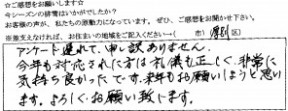 ☆ご感想をお願いします☆
今シーズンの排雪はいかがでしたか？
お客様の声が、私たちの原動力になっています。ぜひ、ご感想をお聞かせ下さい。
※差支えなければ、お住まいの地域をご記入ください→（　　市）厚別 区）
アンケート遅れて、申し訳ありません。
今年も対応された方は礼儀も正しく、非常に
気持ち良かったです。来年もお願いしようと思い
ます。よろしくお願い致します。